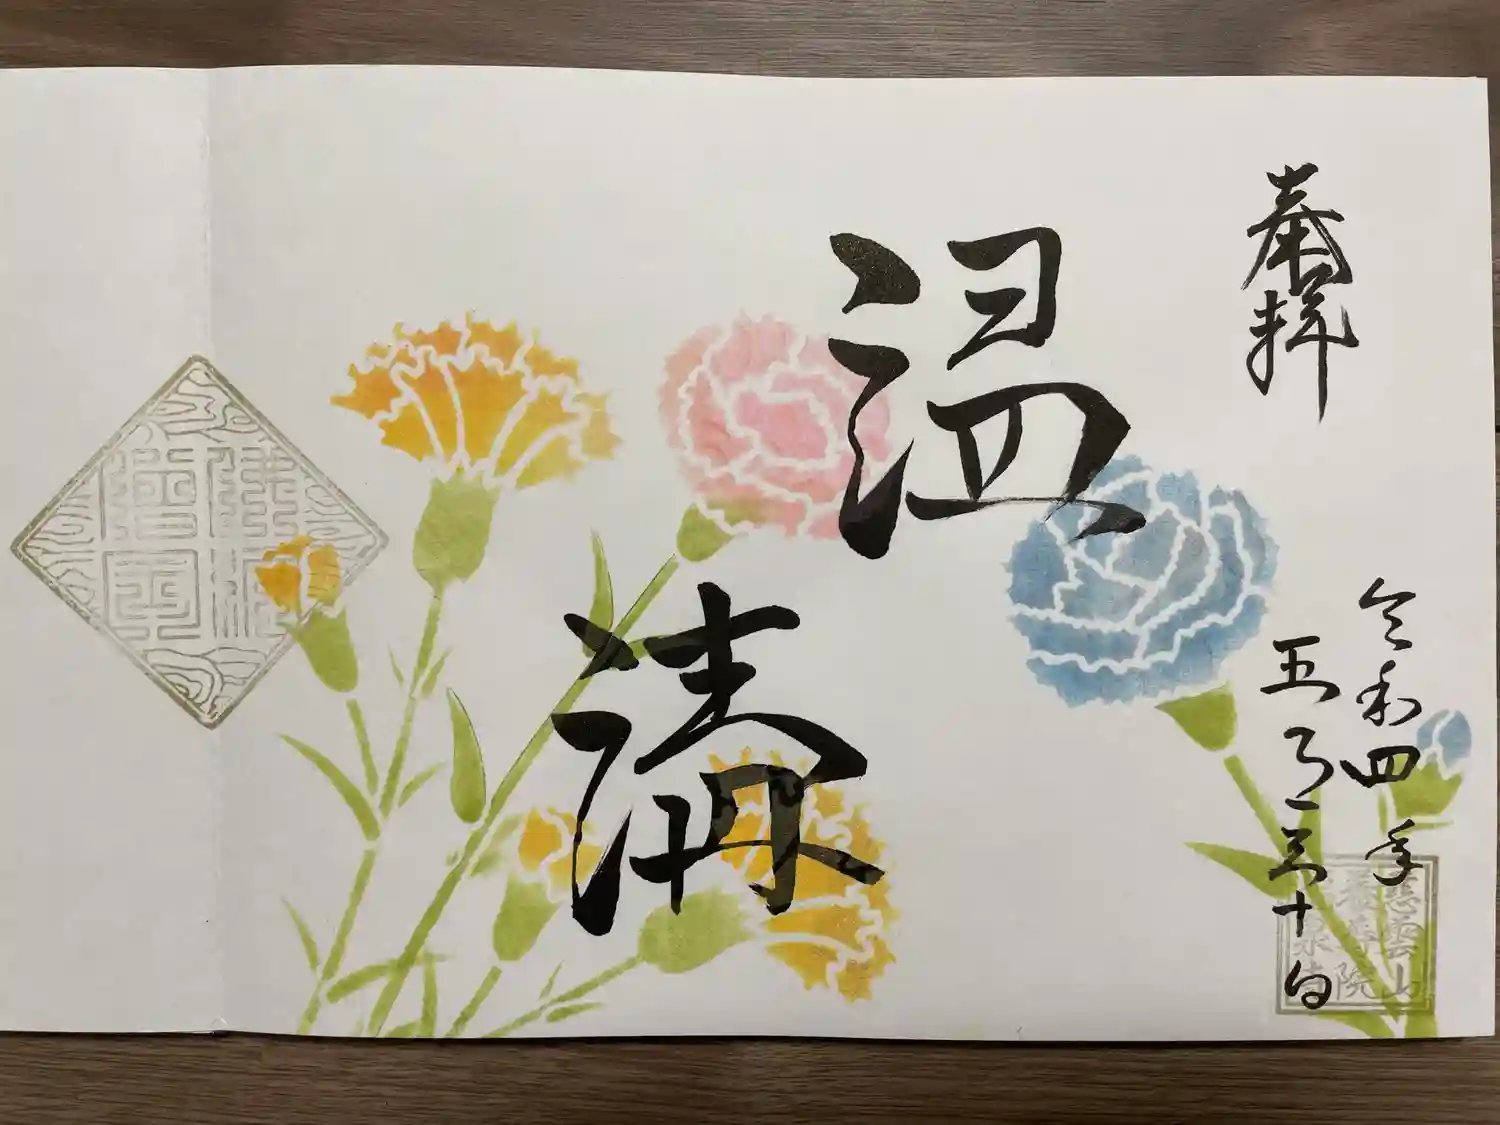 奉拝
温
溝
令和四年
五月三十日
慈雲山